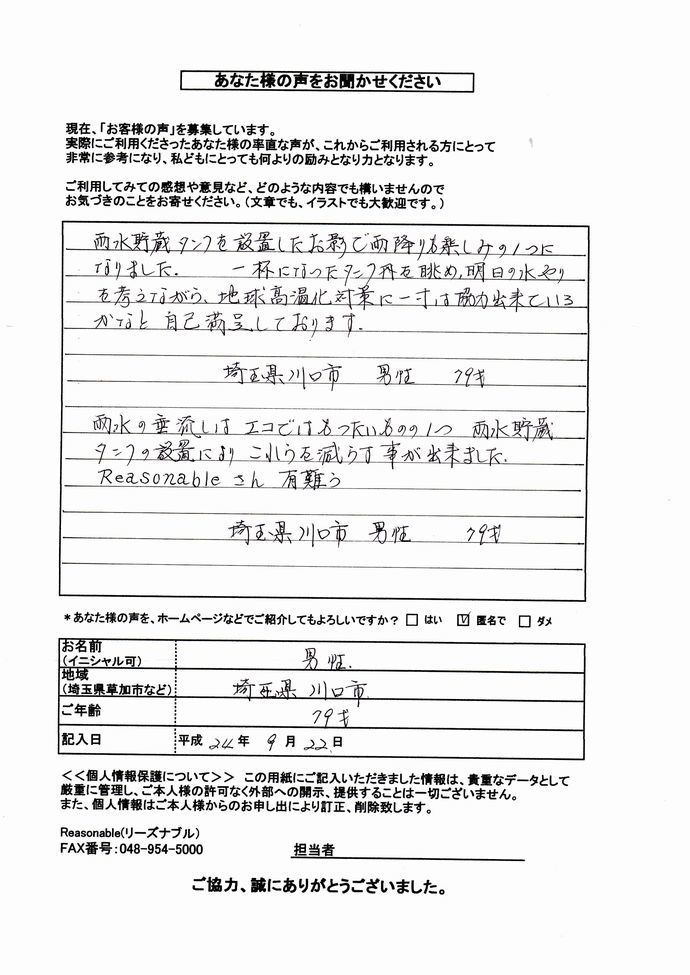 あなた様の声をお聞かせください
現在、「お客様の声」を募集しています。
実際にご利用くださったあなた様の率直な声が、これからご利用される方にとって
非常に参考になり、私どもにとっても何よりの励みとなり力となります。
ご利用してみての感想や意見など、どのような内容でも構いませんので
お気づきのことをお寄せください。（文章でも、イラストでも大歓迎です。）
雨水貯蔵タンクを設置したお影で雨降りも楽しみの1つに
なりました． 一杯になったタンク丼を眺め，明日の水やり
を考えながら、地球高温化対策に一寸は協力出来ている
かなと 自己満足しております．
埼玉県川口市 男性 79才
雨水の垂流しは エコではもったいものの1つ 雨水貯蔵
タンクの設置により これらを減らす事が出来ました．
Reasonable さん 有難う
埼玉県川口市 男性 79才
＊あなた様の声を、ホームページなどでご紹介してもよろしいですか？ □ はい ☑ 匿名で □ ダメ
お名前
（イニシャル可） 男性．
地域
（埼玉県草加市など） 埼玉県 川口市
ご年齢 79才
記入日 平成 24年 9月 22日
＜＜個人情報保護について＞＞ この用紙にご記入いただきました情報は、貴重なデータとして
厳重に管理し、ご本人様の許可なく外部への開示、提供することは一切ございません。
また、個人情報はご本人様からのお申し出により訂正、削除致します。
Reasonable(リーズナブル)
FAX番号：048-954-5000 担当者
ご協力、誠にありがとうございました。